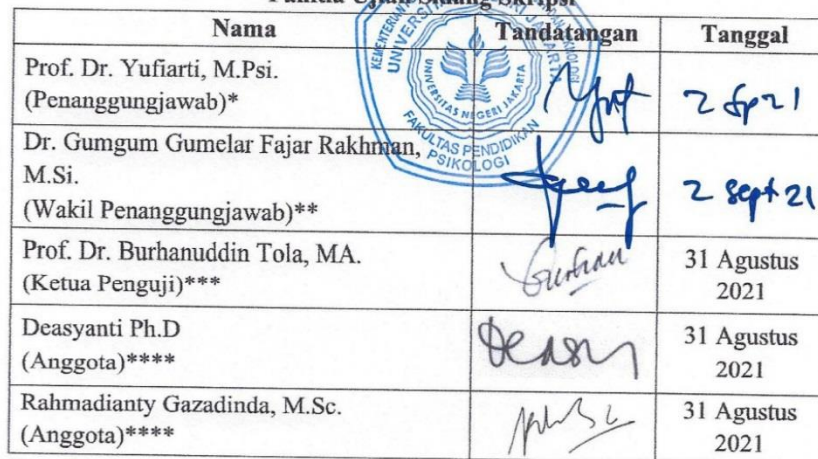 Panitia Ujian Sidang Skripsi
Nama Tandatangan Tanggal
Prof. Dr. Yufiarti, M.Psi.
(Penanggungjawab)*
2 Sp 21
Dr. Gumgum Gumelar Fajar Rakhman,
M.Si.
(Wakil Penanggungjawab)**
2 Sept 21
Prof. Dr. Burhanuddin Tola, MA.
(Ketua Penguji)***
31 Agustus
2021
Deasyanti Ph.D
(Anggota)****
Deasy
31 Agustus
2021
Rahmadianty Gazadinda, M.Sc.
(Anggota)****
31 Agustus
2021
UNIVERSITAS NEGERI JAKARTA
FAKULTAS PENDIDIKAN
PSIKOLOGI